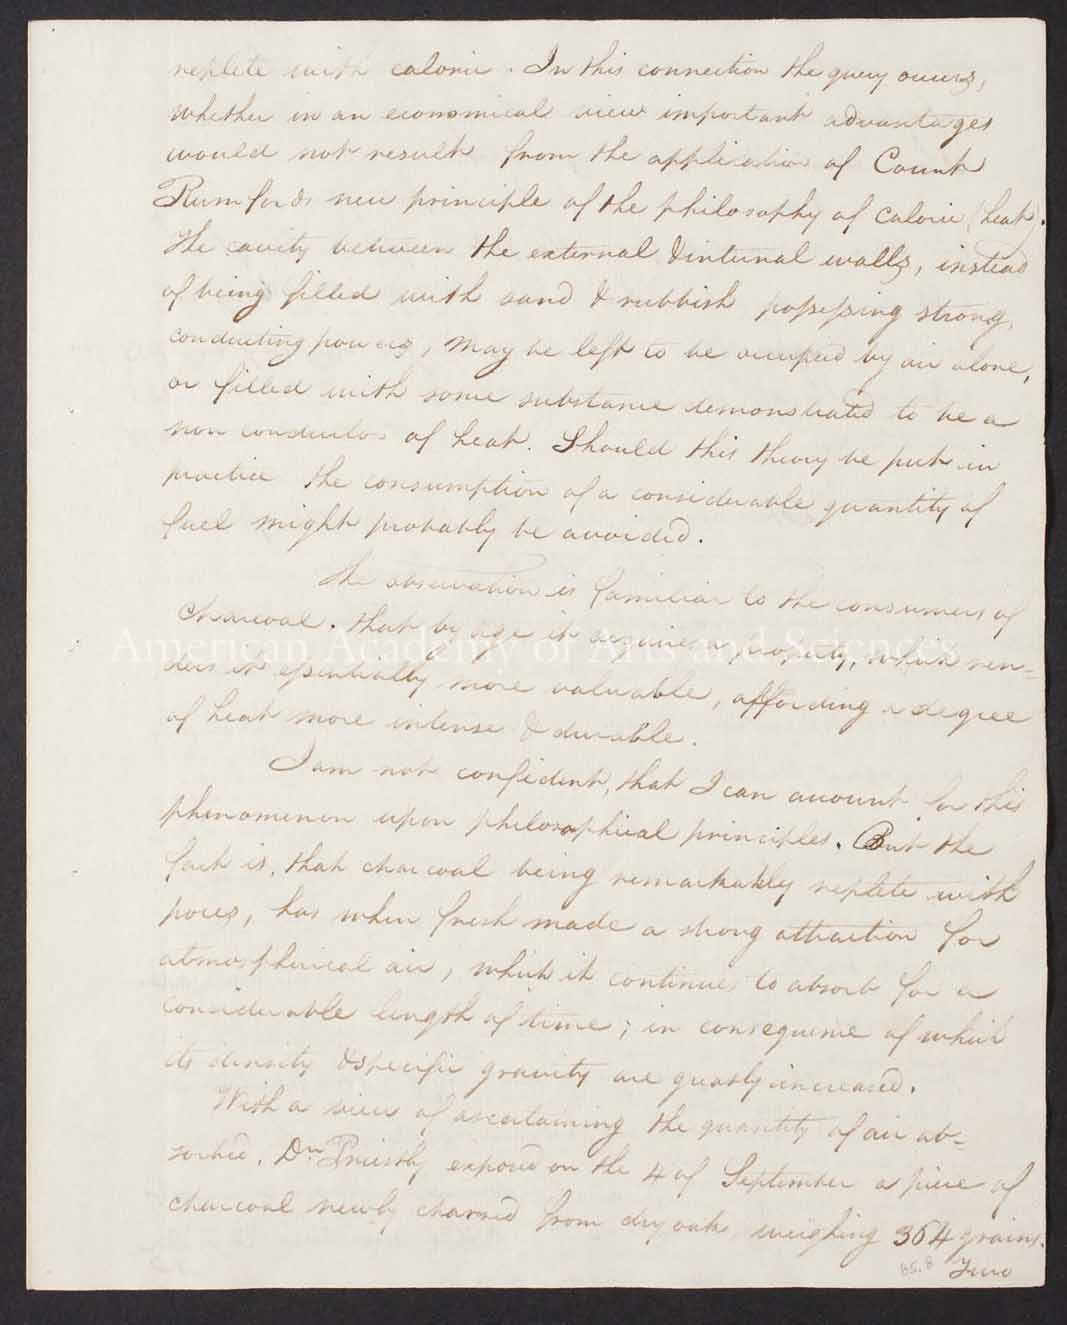 replete with caloric. In this connection the query occurs,
whether in an economical view important advantages
would not result from the application of Count
Rumfords new principle of the philosophy of caloric (heat).
The cavity between the external & internal walls, instead
of being filled with sand & rubbish possessing strong
conducting powers, may be left to be occupied by air alone,
or filled with some substance demonstrated to be a
non conductor of heat. Should this theory be put in
practice the consumption of a considerable quantity of
fuel might probably be avoided.
The observation is familiar to the consumers of
charcoal. that by age it acquires a property, which ren-
American Academy of Arts and Sciences
ders it essentially more valuable, affording a degree
of heat more intense & durable.
I am not confident, that I can account for this
phenomenon upon philosophical principles. But the
fact is, that charcoal being remarkably replete with
pores, has when fresh made a strong attraction for
atmospherical air, which it continues to absorb for a
considerable length of time; in consequence of which
its density & specific gravity are greatly increased.
With a view of ascertaining the quantity of air ab-
sorbed. Dr. Priestly exposed on the 4 of September a piece of
charcoal newly charred from dry oak weighing 364 grains.
85.8 Two